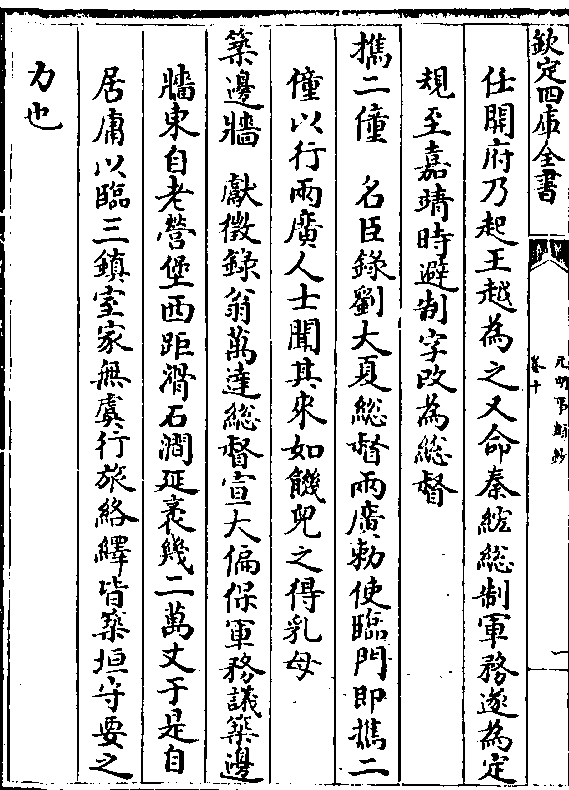 欽定四庫全書
元明事類鈔
卷十
一
仕開府乃起王越為之又命秦紘総制軍務遂為定
規至嘉靖時避制字改為総督
攜二僮 名臣錄劉大夏総督兩廣勅使臨門即攜二
僮以行兩廣人士聞其來如饑兒之得乳母
築邊牆 獻徵錄翁萬達総督宣大偏保軍務議築邊
牆東自老營堡西距滑石澗延袤幾二萬丈于是自
居庸以臨三鎮室家無虞行旅絡繹皆築垣守要之
力也